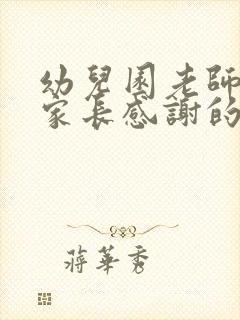 幼兒園老師
家長感謝的
蔣華秀